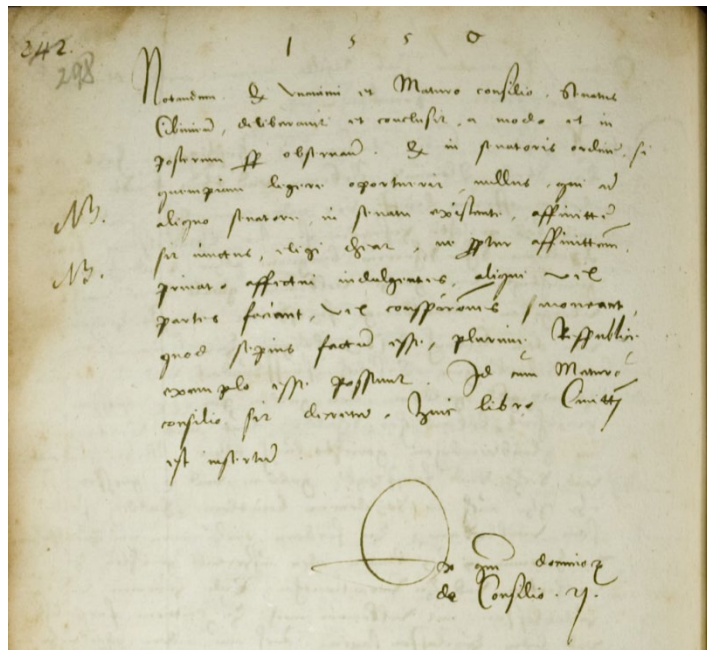 242.
298
1 5 5 0
Notandum. Quod unanimi et Maturo consilio. Senatus
Cibiniensis, deliberavit et conclusit, a modo et in
posterum observandum. Quod in senatoris ordine, si
quempiam legere oportuerit, nullus, qui ad
NB. aliquo senatore in senatu existente, affinitate
sit iunctus, eligi debeat, ne propter affinitatem,
NB. privato affectui indulgentes, aliqui vel
partes faciant, vel conspirationes moveant,
quod sepius factum esse, plurime Respublice
exemplo esse possunt. Id cum Maturo
consilio sit decretum, huic libro Civitatis
est insertum
Ex dominorum
de Consilio.